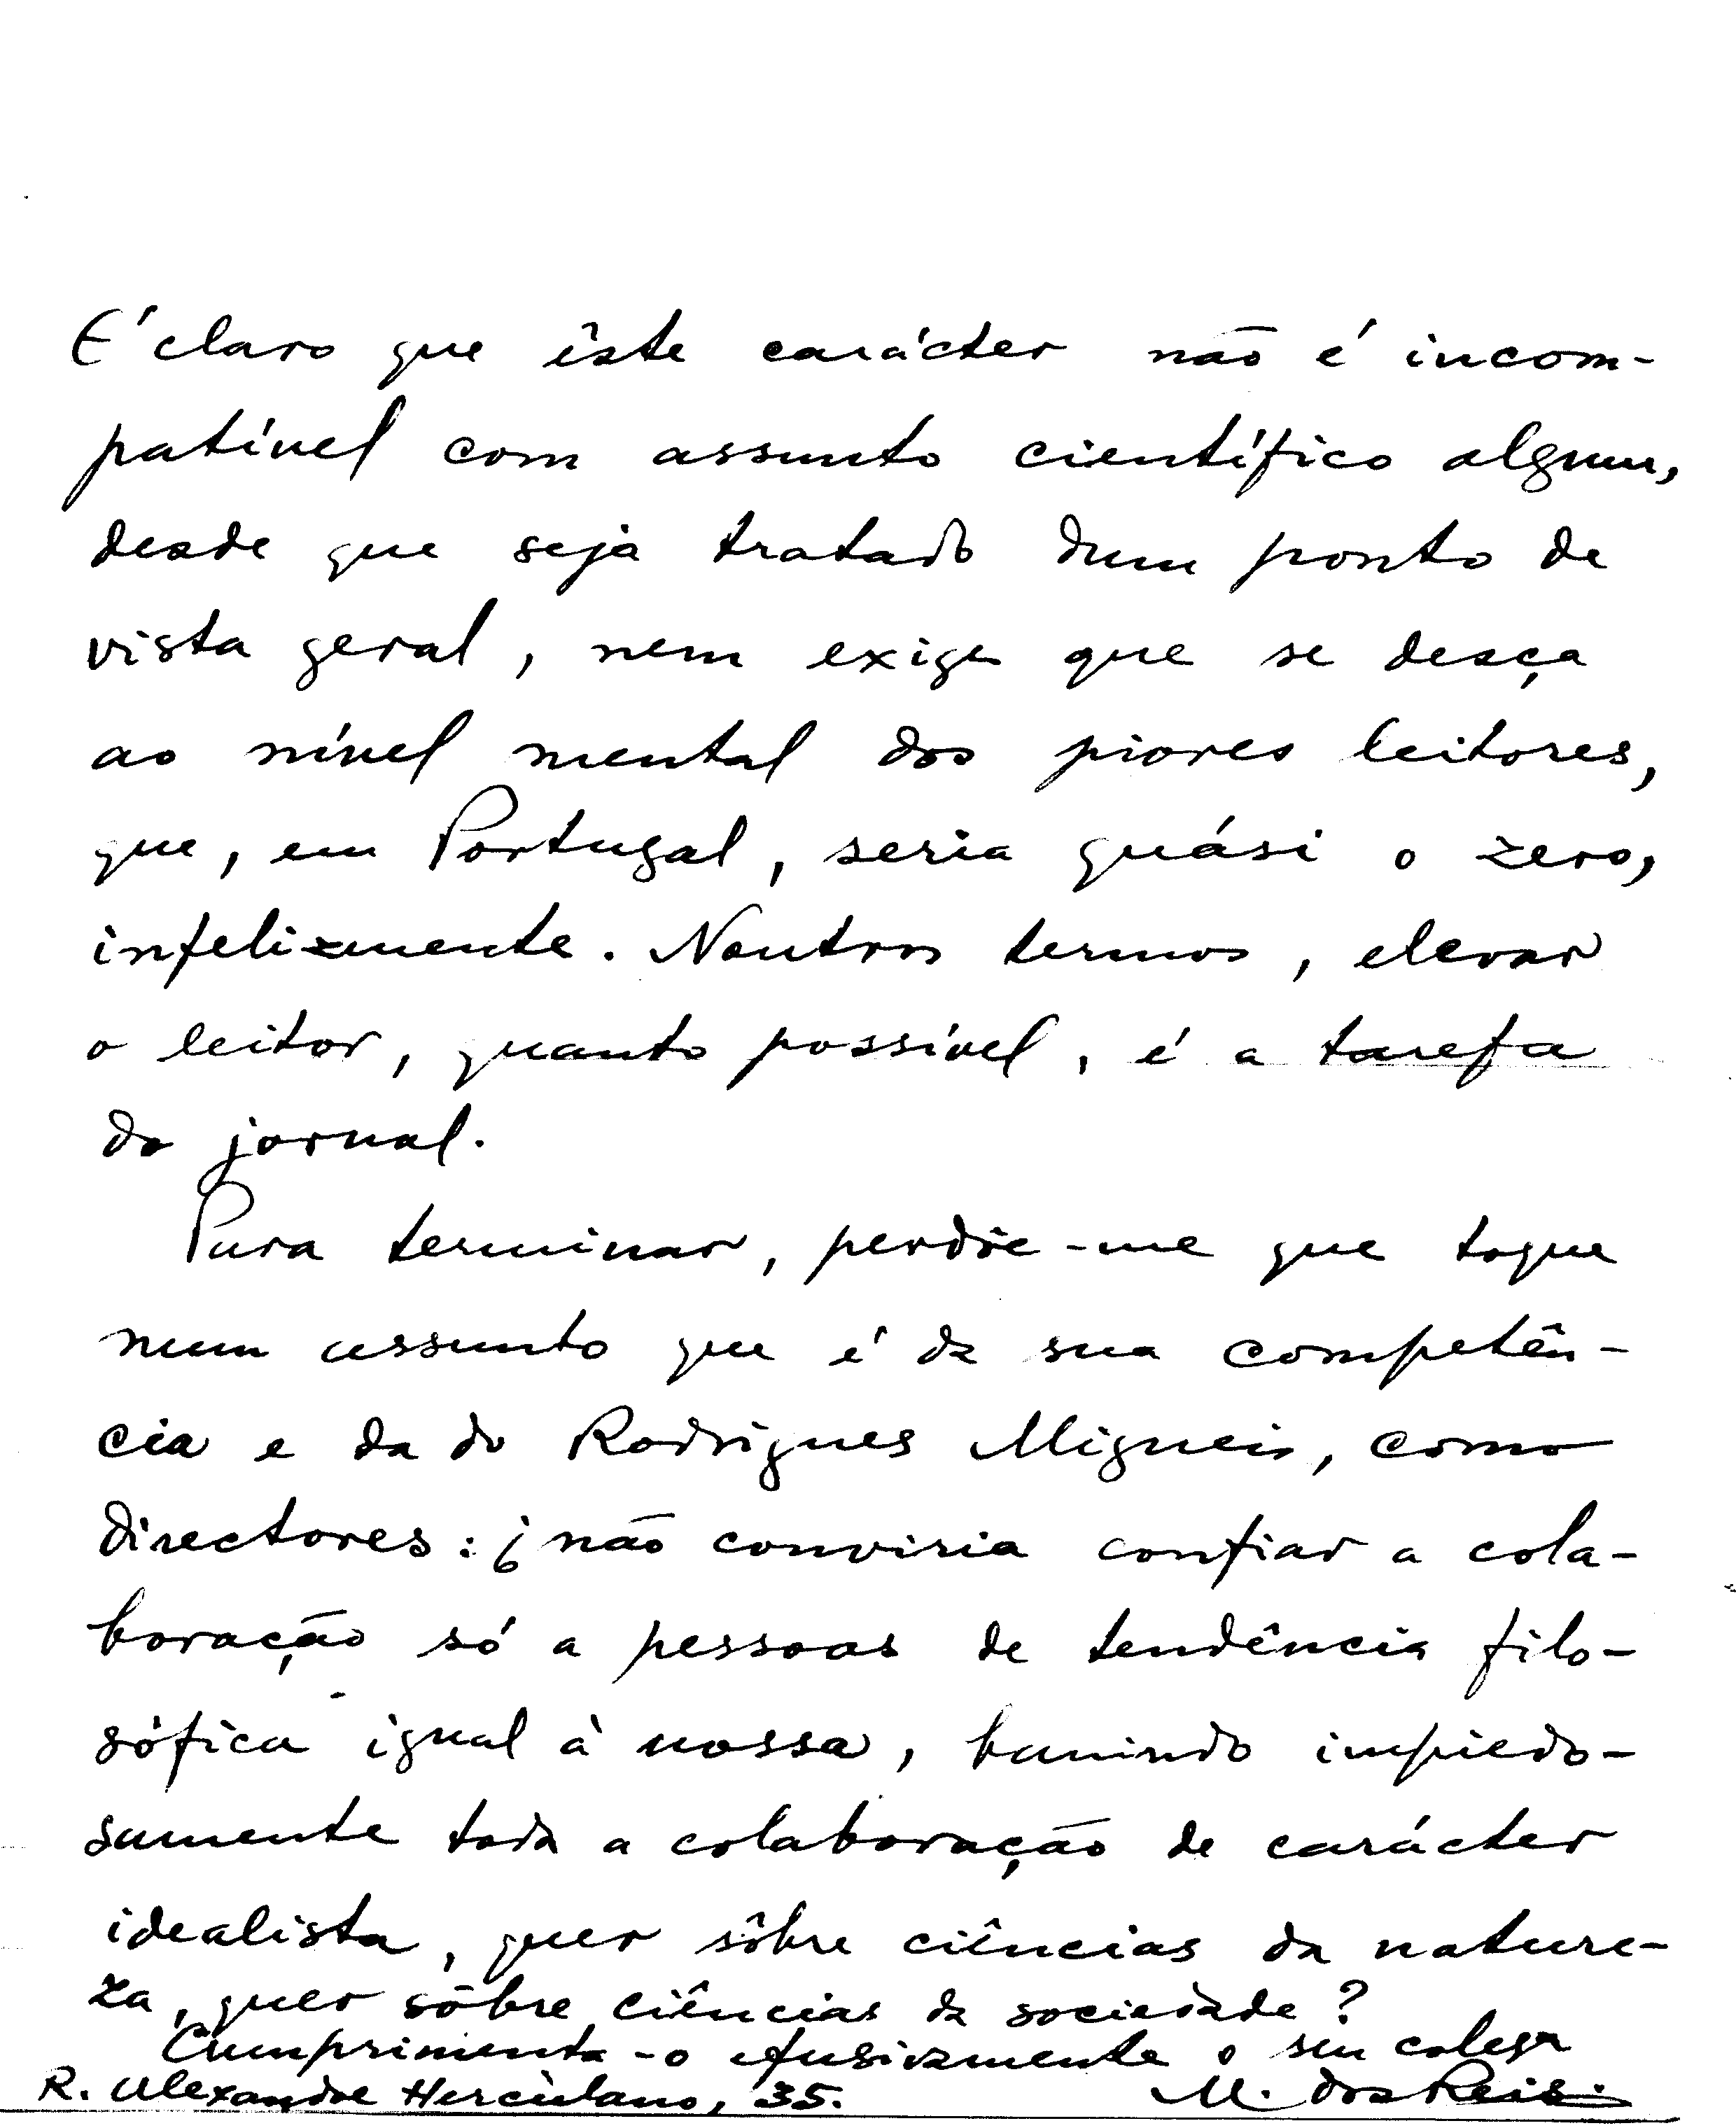 E' claro que êste carácter não é incom-
patível com assunto científico algum,
desde que seja tratado dum ponto de
vista geral, nem exige que se desça
ao nível mental dos piores leitores,
que, em Portugal, seria quási o zero,
infelizmente. Noutros termos, elevar
o leitor, quanto possível, é a tarefa
do jornal.
Para terminar, perdõe-me que toque
num assunto que é da sua competên-
cia e da do Rodrigues Migueis, como
directores: ¿não conviria confiar a cola-
boração só a pessoas de tendência filo-
sófica igual à nossa, banindo impiedo-
samente toda a colaboração de carácter
idealista, quer sôbre ciências da nature-
za, quer sôbre ciências da sociedade?
Cumprimenta-o efusivamente o seu colega
M. dos Reis.
R. Alexandre Herculano, 35.